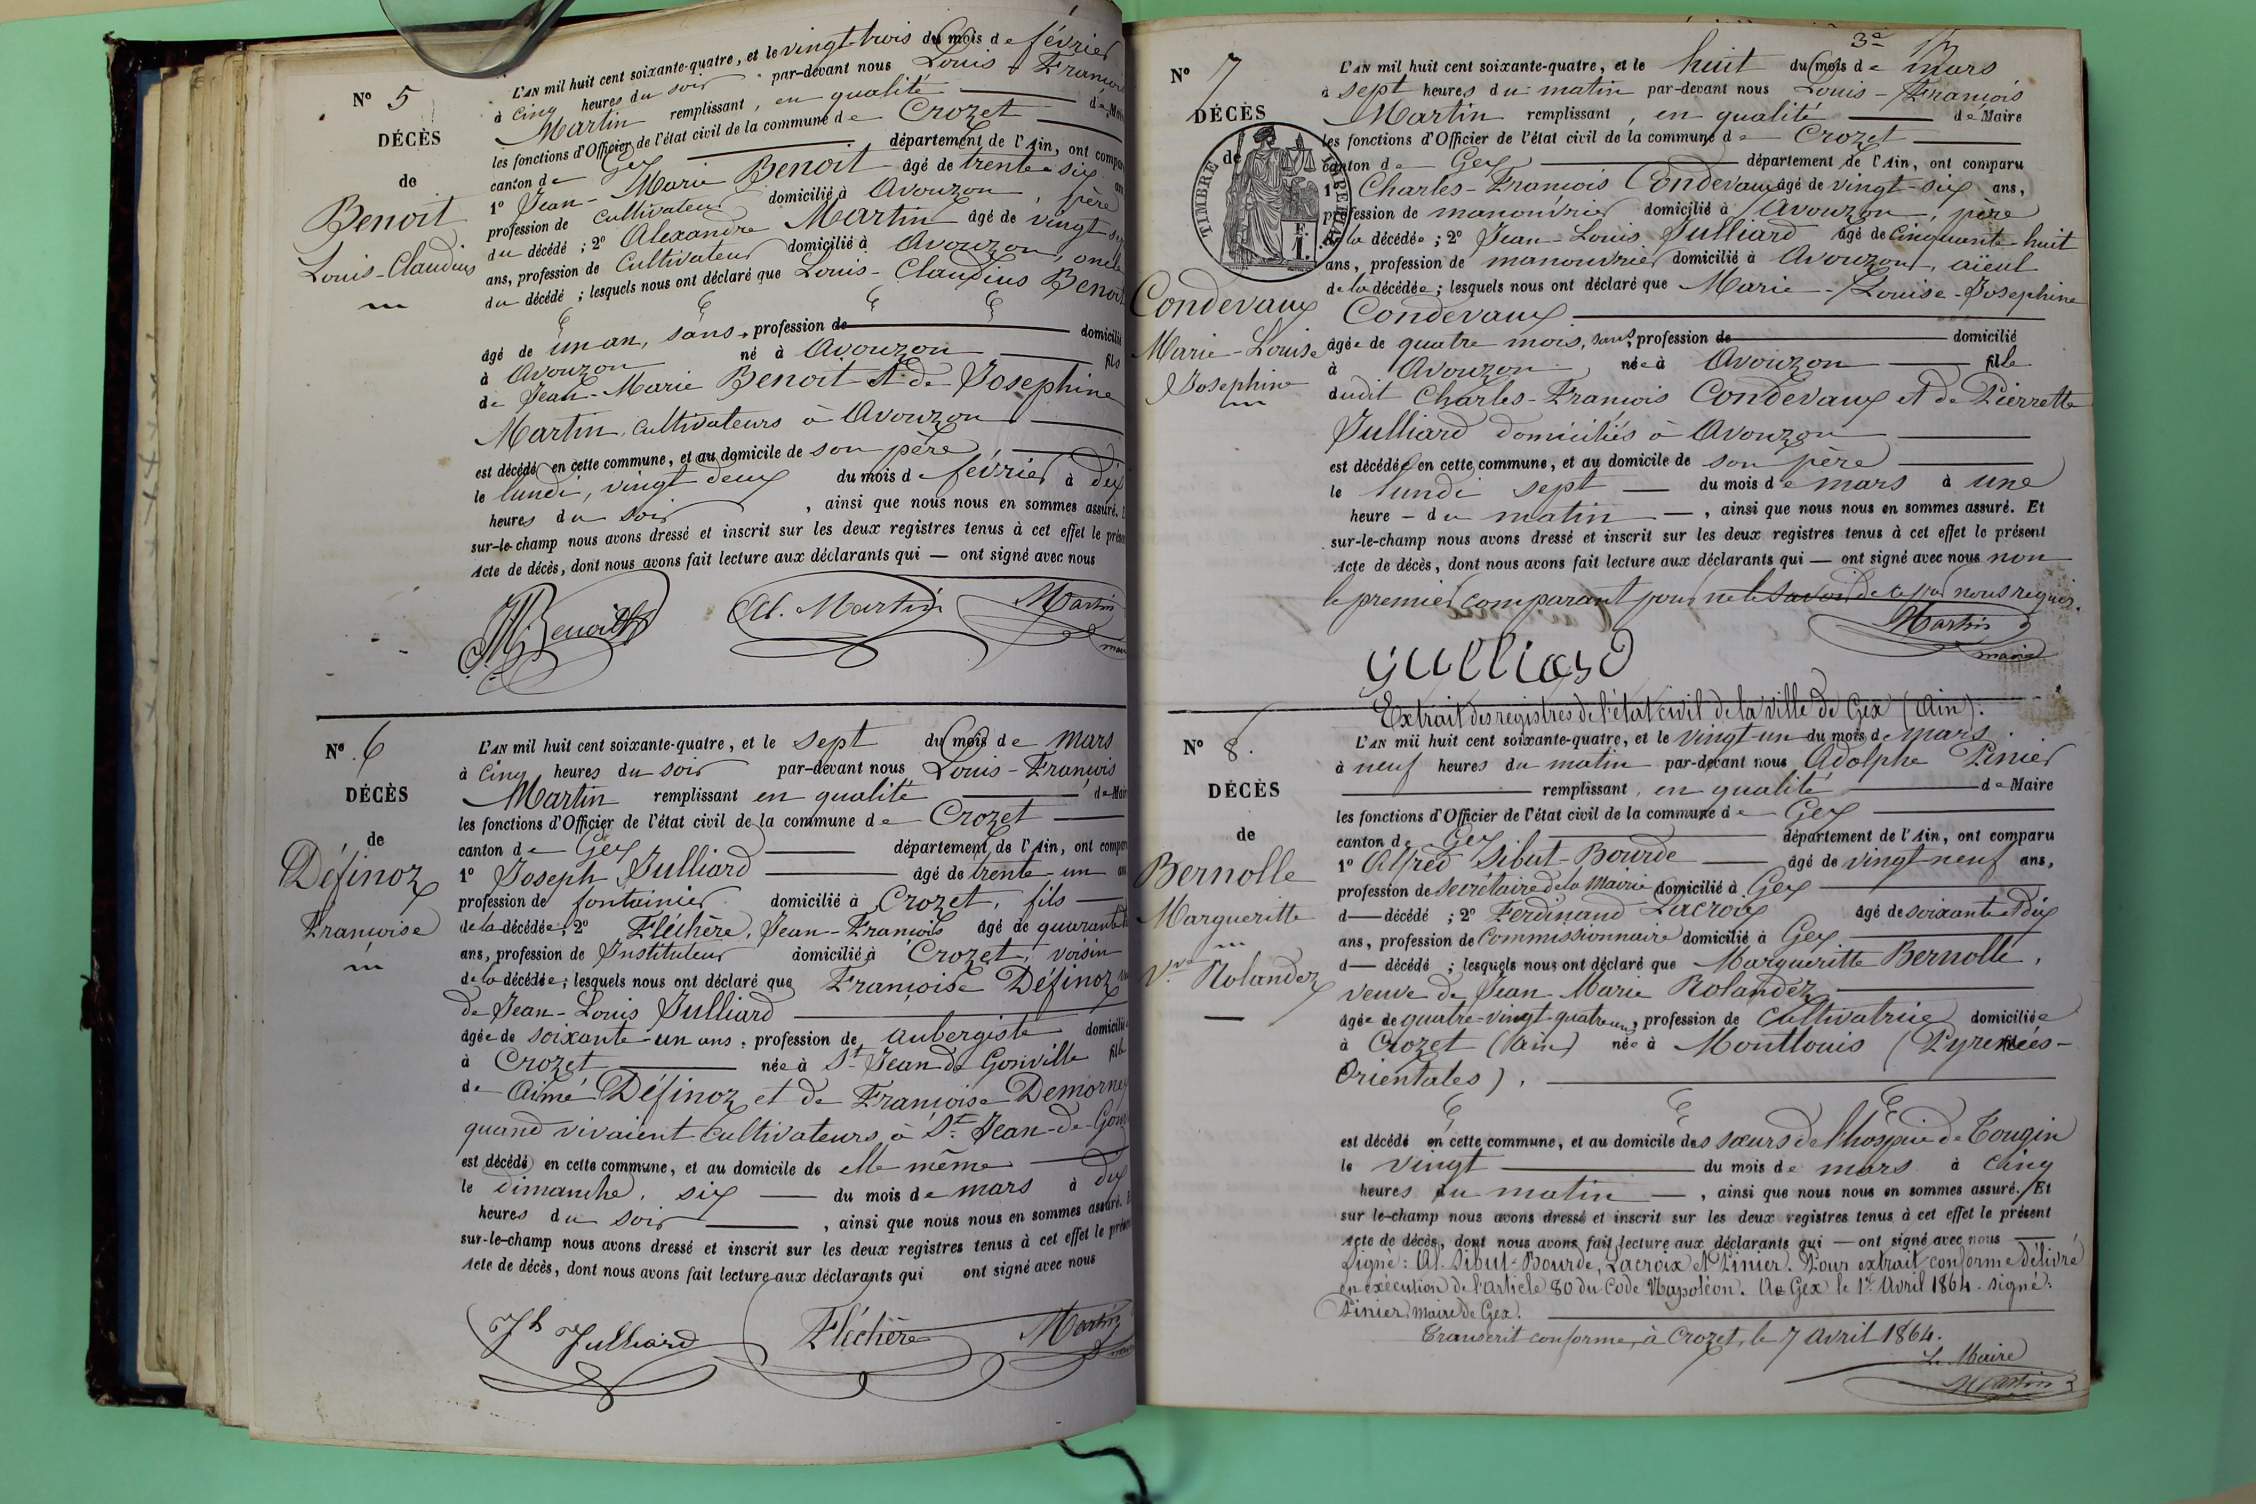 N° 5
DÉCÈS
de
Benoit
Louis-Claudius
L'AN mil huit cent soixante-quatre, et le vingt-trois du mois de février
à cinq heures du soir par-devant nous Louis-François
Martin remplissant, en qualité de Maire
les fonctions d'Officier de l'état civil de la commune de Crozet
canton de Gex département de l'Ain, ont comparu
1° Jean-Marie Benoit âgé de trente-six ans
profession de cultivateur domicilié à Avouzon, père
du décédé ; 2° Alexandre Martin âgé de vingt-six
ans, profession de Cultivateur domicilié à Avouzon, oncle
du décédé ; lesquels nous ont déclaré que Louis-Claudius Benoit
âgé de un an, sans profession de domicilié
à Avouzon né à Avouzon fils
de Jean-Marie Benoit et de Josephine
Martin, cultivateurs à Avouzon
est décédé en cette commune, et au domicile de son père
le lundi, vingt deux du mois de février à dix
heures du soir, ainsi que nous nous en sommes assuré. Et
sur-le-champ nous avons dressé et inscrit sur les deux registres tenus à cet effet le présent
Acte de décès, dont nous avons fait lecture aux déclarants qui — ont signé avec nous
JM Benoit Al. Martin Martin
maire
N° 6
DÉCÈS
de
Définoz
Françoise
L'AN mil huit cent soixante-quatre, et le sept du mois de mars
à cinq heures du soir par-devant nous Louis-François
Martin remplissant en qualité de Maire
les fonctions d'Officier de l'état civil de la commune de Crozet
canton de Gex département de l'Ain, ont comparu
1° Joseph Julliard âgé de trente-un ans
profession de fontainier domicilié à Crozet, fils
de la décédée ; 2° Fléchère, Jean-François âgé de quarante
ans, profession de Instituteur domicilié à Crozet, voisin
de la décédée ; lesquels nous ont déclaré que Françoise Définoz
de Jean-Louis Julliard
âgée de soixante-un ans, profession de aubergiste domiciliée
à Crozet née à St Jean de Gonville fille
de Aimé Définoz et de Françoise Demornex
quand vivaient cultivateurs à St Jean-de-Gonv
est décédé en cette commune, et au domicile de elle même
le dimanche, six du mois de mars à dix
heures du soir, ainsi que nous nous en sommes assuré. Et
sur-le-champ nous avons dressé et inscrit sur les deux registres tenus à cet effet le présent
Acte de décès, dont nous avons fait lecture aux déclarants qui ont signé avec nous
Jh Julliard Fléchère Martin
3e
N° 7
DÉCÈS
de
TIMBRE IMPERIAL
Condevaux
Marie-Louise
Josephine
L'AN mil huit cent soixante-quatre, et le huit du mois de mars
à sept heures du matin par-devant nous Louis-François
Martin remplissant, en qualité de Maire
les fonctions d'Officier de l'état civil de la commune de Crozet
canton de Gex département de l'Ain, ont comparu
1° Charles-François Condevaux âgé de vingt-six ans,
profession de manouvrier domicilié à Avouzon, père
de la décédée ; 2° Jean-Louis Julliard âgé de cinquante-huit
ans, profession de manouvrier domicilié à Avouzon, aïeul
de la décédée ; lesquels nous ont déclaré que Marie-Louise-Josephine
Condevaux
âgée de quatre mois, sans profession de domicilié
à Avouzon née à Avouzon fille
dudit Charles-François Condevaux et de Pierrette
Julliard domiciliés à Avouzon
est décédée en cette commune, et au domicile de son père
le lundi sept du mois de mars à une
heure - du matin, ainsi que nous nous en sommes assuré. Et
sur-le-champ nous avons dressé et inscrit sur les deux registres tenus à cet effet le présent
Acte de décès, dont nous avons fait lecture aux déclarants qui — ont signé avec nous non
le premier comparant pour ne le savoir de ce par nous requis.
Martin
maire
Julliard
Extrait des registres de l'état civil de la ville de Gex (Ain).
N° 8.
DÉCÈS
de
Bernolle
Margueritte
Vve Rolandez
L'AN mil huit cent soixante-quatre, et le vingt-un du mois de mars
à neuf heures du matin par-devant nous Adolphe Pinier
remplissant, en qualité de Maire
les fonctions d'Officier de l'état civil de la commune de Gex
canton de Gex département de l'Ain, ont comparu
1° Alfred Sibut-Bourde âgé de vingt neuf ans,
profession de Secrétaire de la Mairie domicilié à Gex
d— décédé ; 2° Ferdinand Lacroix âgé de soixante et dix
ans, profession de Commissionnaire domicilié à Gex
d— décédé ; lesquels nous ont déclaré que Margueritte Bernolle,
veuve de Jean Marie Rolandez
âgée de quatre-vingt-quatre ans, profession de Cultivatrice domiciliée
à Crozet (Ain) née à Montlouis (Pyrénées-
Orientales),
est décédé en cette commune, et au domicile des sœurs de l'hospice de Tougin
le vingt du mois de mars à cinq
heures du matin, ainsi que nous nous en sommes assuré. Et
sur le-champ nous avons dressé et inscrit sur les deux registres tenus à cet effet le présent
Acte de décès, dont nous avons fait lecture aux déclarants qui — ont signé avec nous
Signé : Al. Sibut-Bourde, Lacroix et Pinier. Pour extrait conforme délivré
en exécution de l'article 80 du Code Napoléon. A Gex le 1er Avril 1864. signé :
Pinier, maire de Gex.
Transcrit conforme, à Crozet, le 7 avril 1864.
Le Maire
Martin